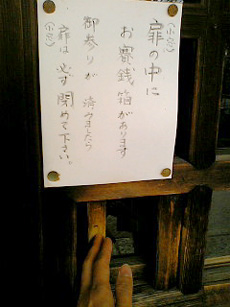 (小窓)
扉の中に
お賽銭箱があります
御参りが 済みましたら
扉は必ず閉めて下さい。
(小窓)